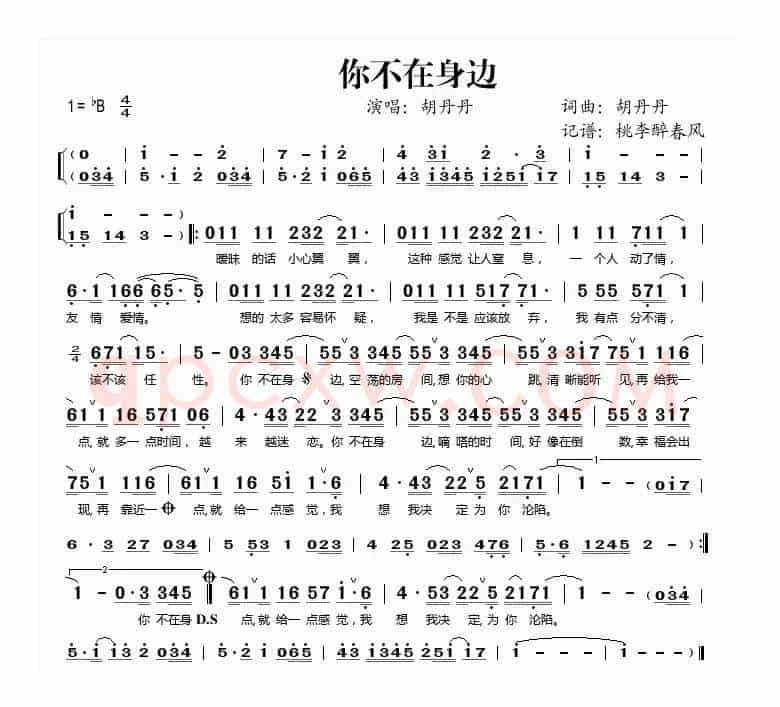 你不在身边
1=♭B 4/4 演唱：胡丹丹 词曲：胡丹丹
记谱：桃李醉春风
(0 | i - - 2 | 7 - i 2 | 4 3i 2 · 3 | i - - - |
(034 | 5·i 2 034 | 5·2 i 065 | 43 i345 i251 i17 | 15 14 3 - |
i - - -)
15 14 3 -) ‖: 011 11 232 21· | 011 11 232 21· | 1 11 711 1 |
暧昧 的话 小心翼 翼， 这种 感觉 让人窒 息， 一 个人 动了情，
6·1 166 65·5 | 011 11 232 21· | 011 11 517 71· | 5 55 571 1 |
友 情 爱情。 想的 太多 容易怀 疑， 我是 不是 应该放 弃， 我 有点 分不清，
2/4 671 15· | 5 - 03 345 | 55 3 345 55 3 345 | 55 3 317 75 1 116 |
该不该 任 性。 你 不在身 边，空 荡的房 间，想 你的心 跳，清 晰能听 见，再 给我一
61 1 16 571 06· | 4·43 22 3 345 | 55 3 345 55 3 345 | 55 3 317
点，就 多一 点时间，越 来 越迷 恋。你 不在身 边，嘀 嗒的时 间，好 像在倒 数，幸 福会出
75 1 116 | 61 1 16 5i 1·6 | 4·43 22 5 2171 | 1 - (017
现，再 靠近一 点，就 给一 点感 觉，我 想 我决 定为 你 沦陷。
1
6·3 27 034 | 5 53 1 023 | 4 25 023 476 | 5·6 1245 2 -) :‖
2
1 - 0·3 345 ‖ 61 1 16 57 i·6 | 4·53 22 5 2171 | 1 - (034 |
你 不在身 D.S 点，就 给一 点感觉，我 想 我决 定，为 你 沦陷。
5·i i3 2 034 | 5·2 i 065 | 43 i345 25i i17 | 1 - - - | 1 - - -) ‖
gpcxw.com